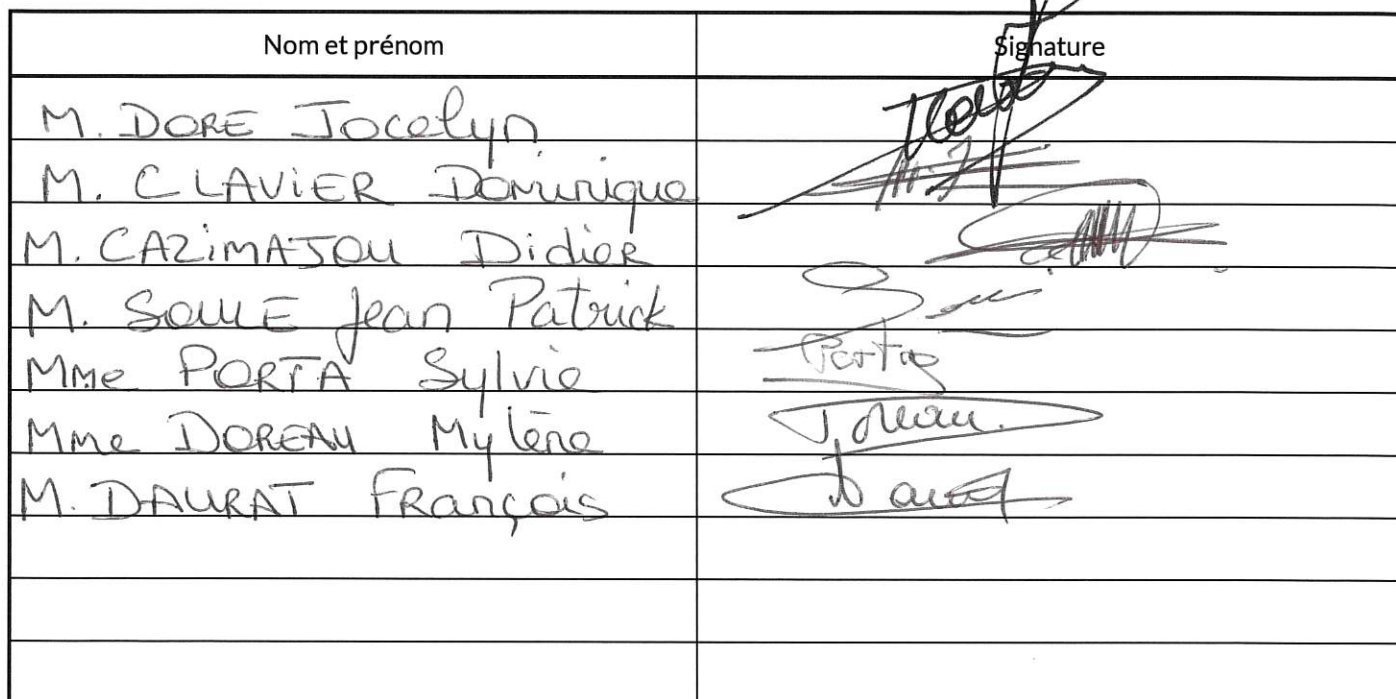 Nom et prénom Signature
M. DORE Jocelyn
M. CLAVIER Dominique
M. CAZiMAJOU Didier
M. SOULE Jean Patrick
Mme PORTA Sylvie Porta
Mme DOREAU Mylène
M. DAURAT François